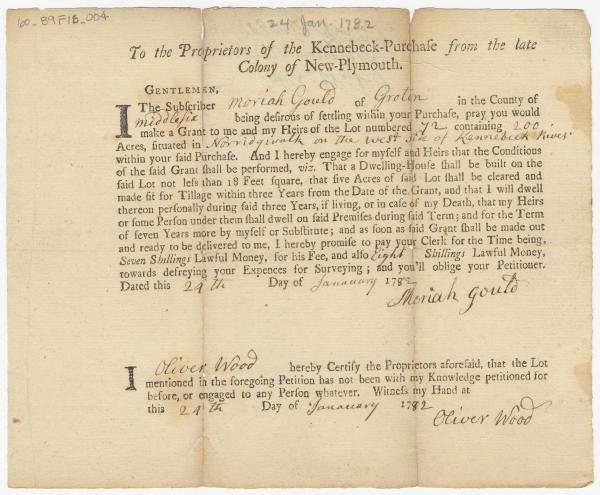 60_89F1B_004
24 Jan. 1782
To the Proprietors of the Kennebeck-Purchase from the late
Colony of New-Plymouth.
GENTLEMEN,
The Subscriber Moriah Gould of Groton in the County of
middlesix being desirous of settling within your Purchase, pray you would
I make a Grant to me and my Heirs of the Lot numbered 72 containing 200
Acres, situated in Norridgwalk on the west side of Kennebeck River
within your said Purchase. And I hereby engage for myself and Heirs that the Conditions
of the said Grant shall be performed, viz. That a Dwelling-House shall be built on the
said Lot not less than 18 Feet square, that five Acres of said Lot shall be cleared and
made fit for Tillage within three Years from the Date of the Grant, and that I will dwell
thereon personally during said three Years, if living, or in case of my Death, that my Heirs
or some Person under them shall dwell on said Premises during said Term; and for the Term
of seven Years more by myself or Substitute; and as soon as said Grant shall be made out
and ready to be delivered to me, I hereby promise to pay your Clerk for the Time being,
Seven Shillings Lawful Money, for his Fee, and also Eight Shillings Lawful Money,
towards defreying your Expences for Surveying; and you'll oblige your Petitioner.
Dated this 24th Day of Janauary 1782
Moriah Gould
I Oliver Wood hereby Certify the Proprietors aforesaid, that the Lot
mentioned in the foregoing Petition has not been with my Knowledge petitioned for
before, or engaged to any Person whatever. Witness my Hand at
this 24th Day of Janauary 1782
Oliver Wood